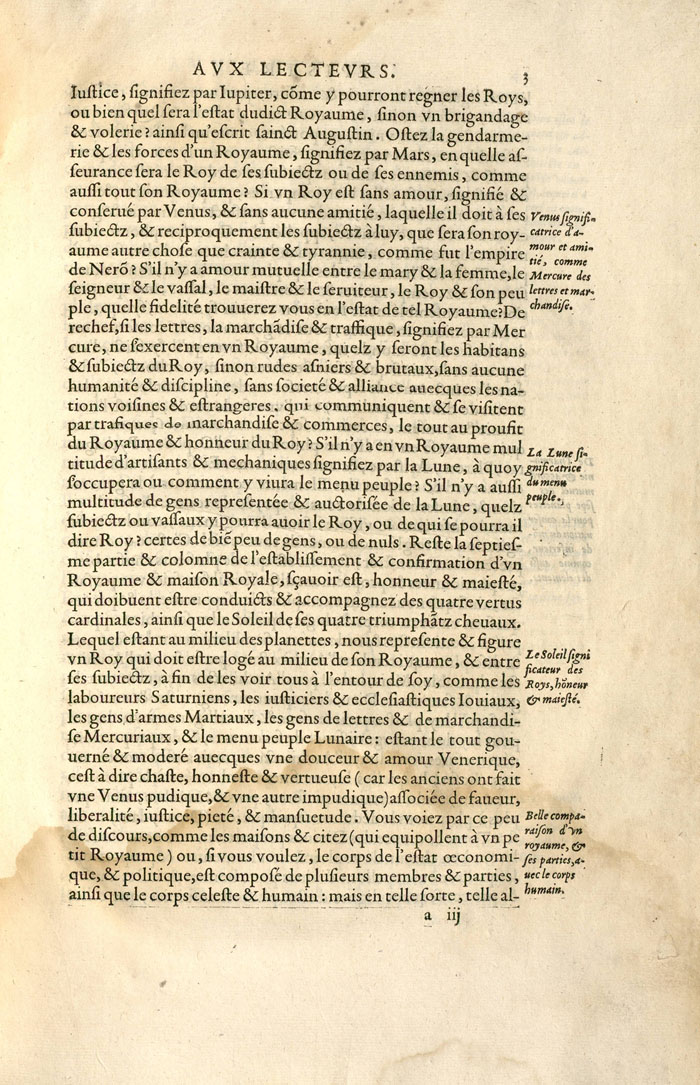 AVX LECTEVRS.
3
Iuſtice, ſignifiez par Iupiter, cõme y pourront regner les Roys,
ou bien quel ſera l'eſtat dudict Royaume, ſinon vn brigandage
& volerie? ainſi qu'eſcrit ſainct Auguſtin. Oſtez la gendarme-
rie & les forces d'un Royaume, ſignifiez par Mars, en quelle aſ-
ſeurance ſera le Roy de ſes ſubiectz ou de ſes ennemis, comme
auſſi tout ſon Royaume? Si vn Roy eſt ſans amour, ſignifié &
conſerué par Venus, & ſans aucune amitié, laquelle il doit à ſes
ſubiectz, & reciproquement les ſubiectz à luy, que ſera ſon roy-
aume autre choſe que crainte & tyrannie, comme fut l'empire
de Nerõ? S'il n'y a amour mutuelle entre le mary & la femme, le
ſeigneur & le vaſſal, le maiſtre & le ſeruiteur, le Roy & ſon peu
ple, quelle fidelité trouuerez vous en l'eſtat de tel Royaume? De
rechef, ſi les lettres, la marchãdiſe & traffique, ſignifiez par Mer
cure, ne ſexercent en vn Royaume, quelz y ſeront les habitans
& ſubiectz du Roy, ſinon rudes aſniers & brutaux, ſans aucune
humanité & diſcipline, ſans ſocieté & alliance auecques les na-
tions voiſines & eſtrangeres, qui communiquent & ſe viſitent
par trafiques de marchandiſe & commerces, le tout au proufit
du Royaume & honneur du Roy? S'il n'y a en vn Royaume mul
titude d'artiſants & mechaniques ſignifiez par la Lune, à quoy
ſoccupera ou comment y viura le menu peuple? S'il n'y a auſſi
multitude de gens repreſentée & auctoriſée de la Lune, quelz
ſubiectz ou vaſſaux y pourra auoir le Roy, ou de qui ſe pourra il
dire Roy? certes de biẽ peu de gens, ou de nuls. Reſte la ſeptieſ-
me partie & colomne de l'eſtabliſſement & confirmation d'vn
Royaume & maiſon Royale, ſçauoir eſt, honneur & maieſté,
qui doibuent eſtre conduicts & accompagnez des quatre vertus
cardinales, ainſi que le Soleil de ſes quatre triumphãtz cheuaux.
Lequel eſtant au milieu des planettes, nous repreſente & figure
vn Roy qui doit eſtre logé au milieu de ſon Royaume, & entre
ſes ſubiectz, à fin de les voir tous à l'entour de ſoy, comme les
laboureurs Saturniens, les iuſticiers & eccleſiaſtiques Iouiaux,
les gens d'armes Martiaux, les gens de lettres & de marchandi-
ſe Mercuriaux, & le menu peuple Lunaire: eſtant le tout gou-
uerné & moderé auecques vne douceur & amour Venerique,
ceſt à dire chaſte, honneſte & vertueuſe (car les anciens ont fait
vne Venus pudique, & vne autre impudique) aſſociée de faueur,
liberalité, iuſtice, pieté, & manſuetude. Vous voiez par ce peu
de diſcours, comme les maiſons & citez (qui equipollent à vn pe
tit Royaume) ou, ſi vous voulez, le corps de l'eſtat œconomi-
que, & politique, eſt compoſé de pluſieurs membres & parties,
ainſi que le corps celeſte & humain: mais en telle ſorte, telle al-
a iij
Venus ſignifi-
catrice d'a-
mour et ami-
tié, comme
Mercure des
lettres et mar-
chandiſe.
La Lune ſi-
gnificatrice
du menu
peuple.
Le Soleil ſigni
ficateur des
Roys, hõneur
& maieſté.
Belle compa-
raiſon d'vn
royaume, &
ſes parties, a-
uec le corps
humain.